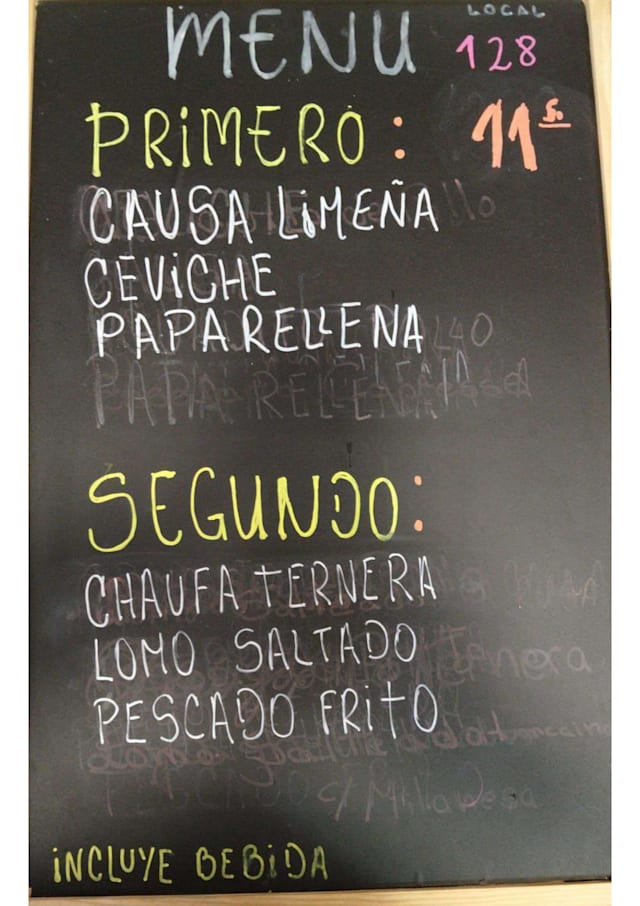 MENU
LOCAL
128
PRIMERO:
11 50
CAUSA LIMEÑA
CEVICHE
PAPA RELLENA
PAPA RELLENA
SEGUNDO:
CHAUFA TERNERA
LOMO SALTADO
PESCADO FRITO
INCLUYE BEBIDA